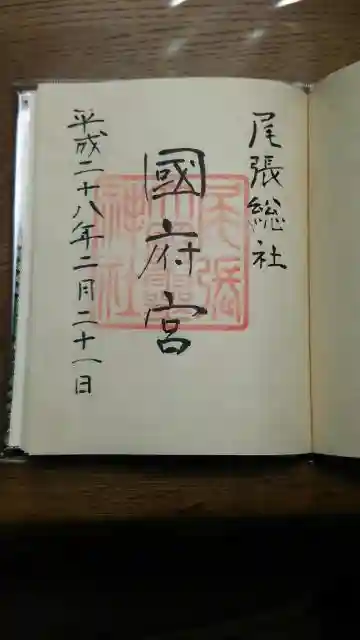 尾張総社
國府宮
平成二十八年二月二十一日
尾張
神社